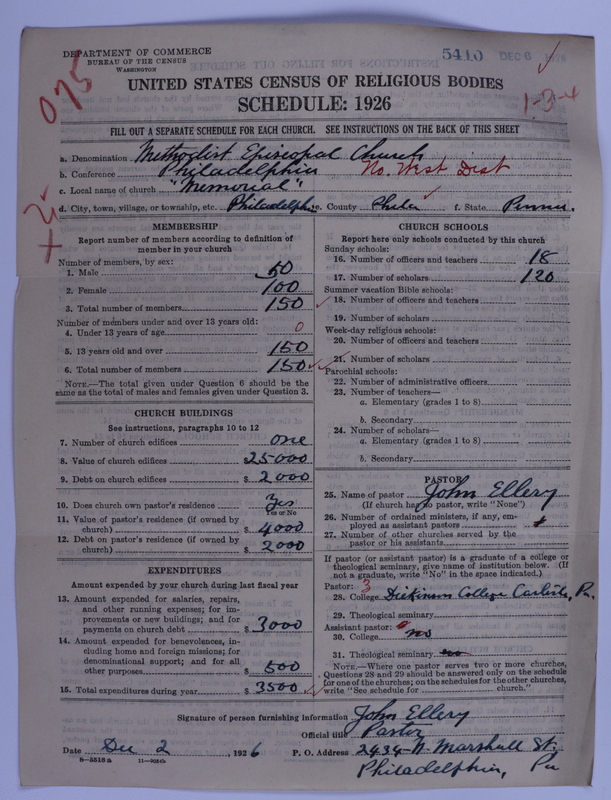 DEPARTMENT OF COMMERCE
BUREAU OF THE CENSUS
WASHINGTON
5410 DEC 6
075
UNITED STATES CENSUS OF RELIGIOUS BODIES
SCHEDULE: 1926
1-D-4
FILL OUT A SEPARATE SCHEDULE FOR EACH CHURCH. SEE INSTRUCTIONS ON THE BACK OF THIS SHEET
a. Denomination Methodist Episcopal Church
b. Conference Philadelphia No. West Dist
c. Local name of church "Memorial"
d. City, town, village, or township, etc. Philadelphia e. County Phila f. State Penna.
MEMBERSHIP
Report number of members according to definition of
member in your church
Number of members, by sex:
1. Male 50
2. Female 100
3. Total number of members 150
Number of members under and over 13 years old:
4. Under 13 years of age 0
5. 13 years old and over 150
6. Total number of members 150
NOTE.—The total given under Question 6 should be the
same as the total of males and females given under Question 3.
CHURCH BUILDINGS
See instructions, paragraphs 10 to 12
7. Number of church edifices one
8. Value of church edifices 25000
9. Debt on church edifices $ 2000
10. Does church own pastor's residence Yes
Yes or No
11. Value of pastor's residence (if owned by
church) $ 4000
12. Debt on pastor's residence (if owned by
church) $ 2000
EXPENDITURES
Amount expended by your church during last fiscal year
13. Amount expended for salaries, repairs,
and other running expenses; for im-
provements or new buildings; and for
payments on church debt $ 3000
14. Amount expended for benevolences, in-
cluding home and foreign missions; for
denominational support; and for all
other purposes $ 500
15. Total expenditures during year $ 3500
CHURCH SCHOOLS
Report here only schools conducted by this church
Sunday schools:
16. Number of officers and teachers 18
17. Number of scholars 120
Summer vacation Bible schools:
18. Number of officers and teachers
19. Number of scholars
Week-day religious schools:
20. Number of officers and teachers
21. Number of scholars
Parochial schools:
22. Number of administrative officers
23. Number of teachers—
a. Elementary (grades 1 to 8)
b. Secondary
24. Number of scholars—
a. Elementary (grades 1 to 8)
b. Secondary
PASTOR
25. Name of pastor John Ellery
(If church has no pastor, write "None")
26. Number of ordained ministers, if any, em-
ployed as assistant pastors
27. Number of other churches served by the
pastor or his assistants
If pastor (or assistant pastor) is a graduate of a college or
theological seminary, give name of institution below. (If
not a graduate, write "No" in the space indicated.)
Pastor: 3
28. College Dickinson College Carlisle, Pa.
29. Theological seminary
Assistant pastor:
30. College no
31. Theological seminary
NOTE.—Where one pastor serves two or more churches,
Questions 28 and 29 should be answered only on the schedule
for one of the churches; on the schedules for the other churches,
write "See schedule for church."
Signature of person furnishing information John Ellery
Official title Pastor
Date Dec 2, 1926 P. O. Address 2434 N. Marshall St.
8-5518 a
Philadelphia, Pa